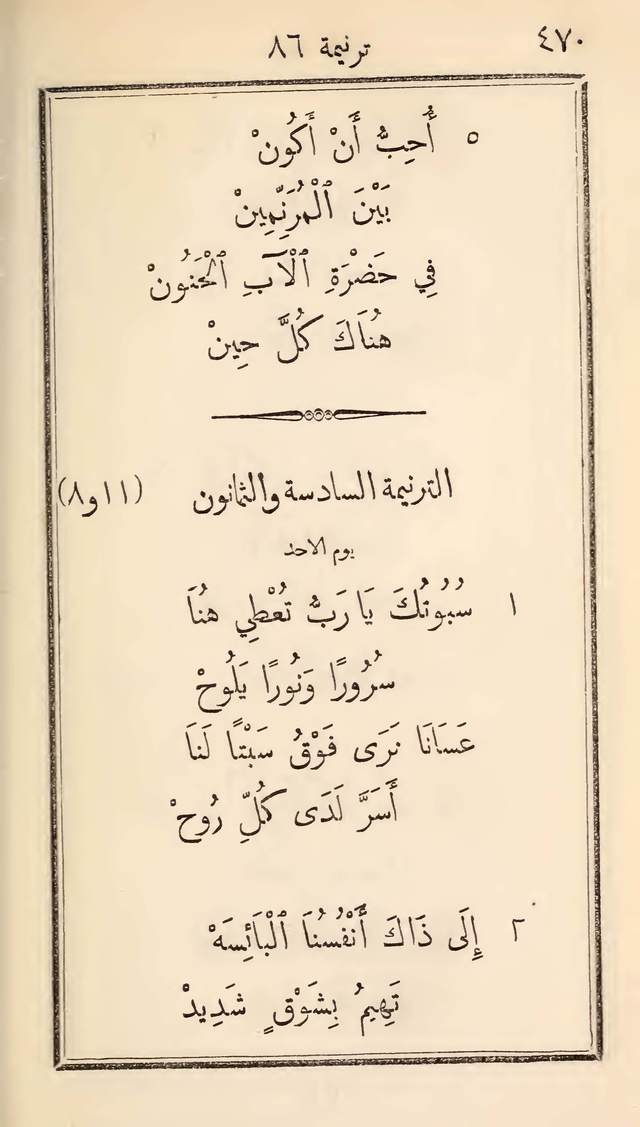 ٤٧٠
ترنيمة ٨٦
٥ أُحِبُّ أَنْ أَكُونْ
بَيْنَ ٱلْمُرَنِّمِينْ
فِي حَضْرَةِ ٱلْآبِ ٱلْحَنُونْ
هُنَاكَ كُلَّ حِينْ
الترنيمة السادسة والثمانون (١١ و٨)
يوم الاحد
١ سُبُوتُكَ يَا رَبُّ تُعْطِي هُنَا
سُرُورًا وَنُورًا يَلُوحْ
عَسَانَا نَرَى فَوْقُ سَبْتًا لَنَا
أَسَرَّ لَدَى كُلِّ رُوحْ
٢ إِلَى ذَاكَ أَنْفُسُنَا ٱلْبَائِسَهْ
تَهِيمُ بِشَوْقٍ شَدِيدْ